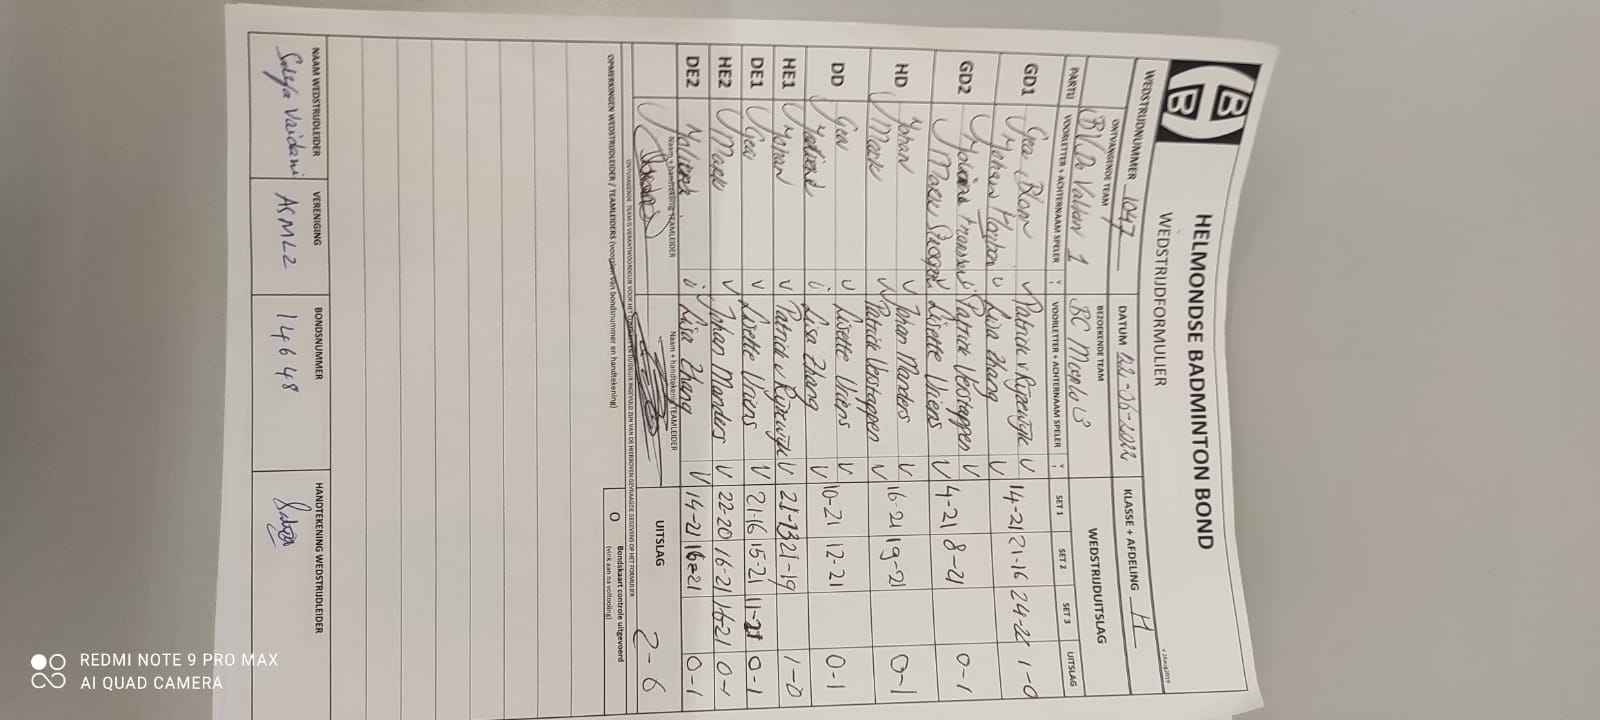 HELMONDSE BADMINTON BOND
WEDSTRIJDFORMULIER
V 26aug2019
WEDSTRIJDNUMMER 1047 DATUM 22-06-2022 KLASSE + AFDELING H
ONTVANGENDE TEAM BEZOEKENDE TEAM WEDSTRIJDUITSLAG
BV De Valken 1 BC Mierlo 3
PARTIJ VOORLETTER + ACHTERNAAM SPELER VOORLETTER + ACHTERNAAM SPELER SET 1 SET 2 SET 3 UITSLAG
GD1 Gea Blom V Patrick v Rijsewijk V 14-21 21-16 24-22 1-0
Johan V Lisa Zhang V
GD2 Patrick Verstappen V 4-21 8-21 0-1
Mark V Lisette Vriens V
HD Johan V Johan Manders V 16-21 19-21 0-1
Mark V Patrick Verstappen V
DD Gea V Lisette Vriens V 10-21 12-21 0-1
Lisa Zhang V
HE1 Johan V Patrick v Rijsewijk V 21-13 21-19 1-0
DE1 Gea V Lisette Vriens V 21-16 15-21 11-21 0-1
HE2 Mark V Johan Manders V 22-20 16-21 16-21 0-1
DE2 Lisa Zhang V 14-21 16-21 0-1
Naam + handtekening TEAMLEIDER Naam + handtekening TEAMLEIDER UITSLAG 2-6
OPMERKINGEN WEDSTRIJDLEIDER / TEAMLEIDERS (voorzien van bondsnummer en handtekening)
O Bondskaart controle uitgevoerd
(vink aan na voltooiing)
NAAM WEDSTRIJDLEIDER VERENIGING BONDSNUMMER HANDTEKENING WEDSTRIJDLEIDER
Vaidani ASML 2 14648
REDMI NOTE 9 PRO MAX
AI QUAD CAMERA